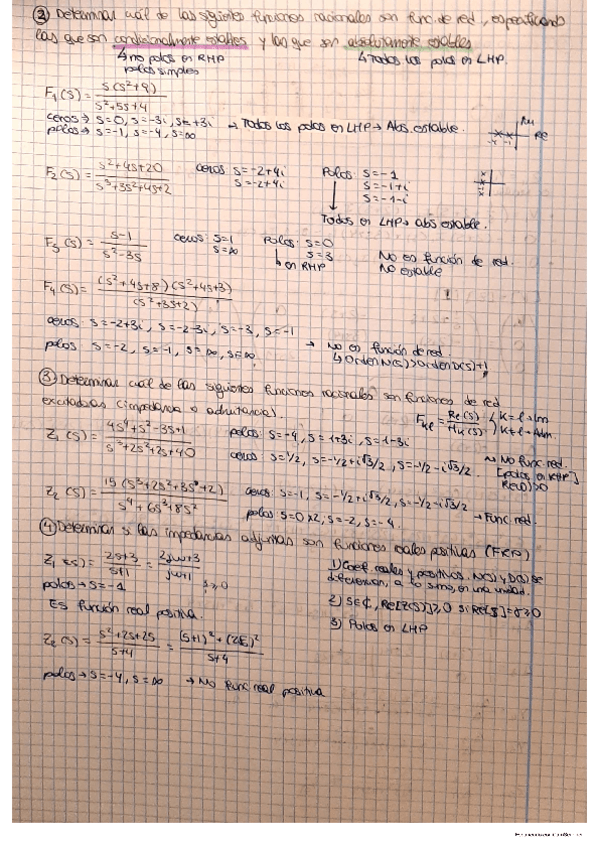 ② Determinar cuál de las siguientes funciones racionales son func. de red, especificando
las que son condicionalmente estables y las que son absolutamente estables
↳ no polos en RHP ↳ Todos los polos en LHP.
polos simples
F₁(s) = s(s²+9) / s²+5s+4
ceros → s=0, s=-3i, s=+3i → Todos los polos en LHP → Abs. estable.
polos → s=-1, s=-4, s=∞
F₂(s) = s²+4s+20 / s³+3s²+4s+2 ceros: s=-2+4i Polos: s=-1
s=-2+4i s=-1+i
s=-1-i
Todos en LHP → abs estable.
F₃(s) = s-1 / s²-3s ceros: s=1 Polos: s=0 No es función de red.
s=∞ s=3 No estable
↳ en RHP
F₄(s) = (s²+4s+8)(s²+4s+3) / (s²+3s+2)
ceros: s=-2+3i, s=-2-3i, s=-3, s=-1
polos s=-2, s=-1, s=∞, s=∞. → No es función de red.
↳ Orden N(s) > Orden D(s)+1
③ Determinar cuál de las siguientes funciones racionales son funciones de red
excitadoras (impedancia o admitancia).
Z₁(s) = 4s⁴+s²-3s+1 / s³+2s²+2s+40 polos: s=-4, s=1+3i, s=1-3i
ceros: s=1/2, s=-1/2+i√3/2, s=-1/2-i√3/2. → No func. red.
[polos en RHP]
Z₂(s) = 15(s³+2s²+3s+2) / s⁴+6s³+8s² ceros: s=-1, s=-1/2+i√3/2, s=-1/2-i√3/2
polos: s=0 x2, s=-2, s=-4. → Func. red.
④ Determinar si las impedancias adjuntas son funciones reales positivas (FRP)
Z₁(s) = 2s+3 / s+1 = 2jω+3 / jω+1 1) Coef. reales y positivos. N(s) y D(s) se
diferencian, a lo sumo, en una unidad.
polos → s=-1
Es función real positiva. 2) S∈ℂ, Re[Z(s)]≥0 si Re[s]=σ≥0
3) Polos en LHP
Z₂(s) = s²+2s+25 / s+4
polos → s=-4, s=∞ → No func real positiva